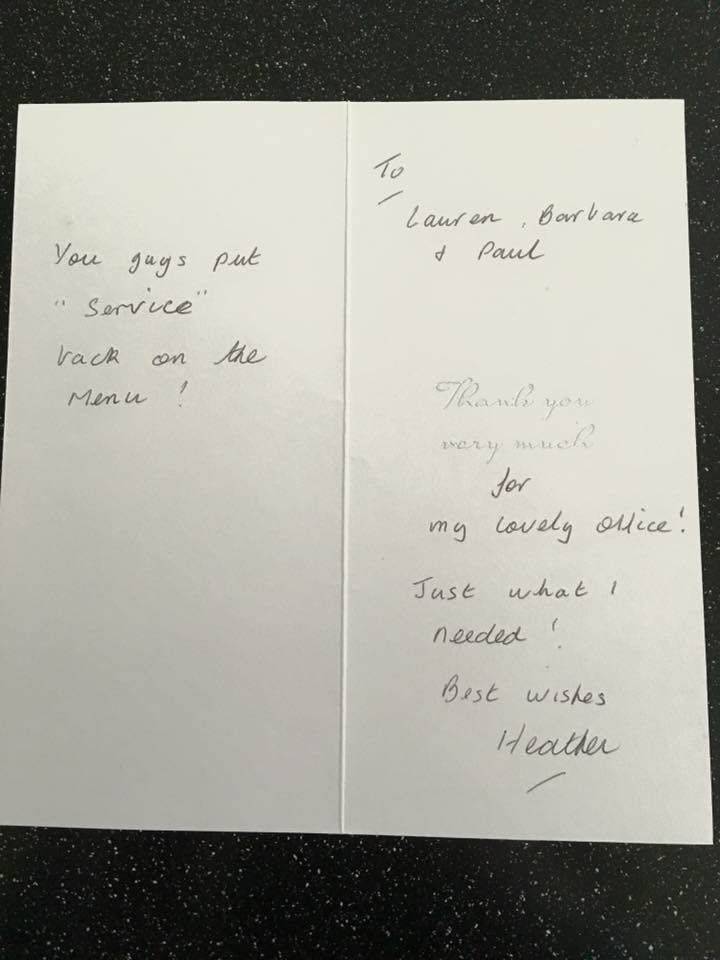 You guys put
"Service"
back on the
Menu!
To
Lauren, Barbara
& Paul
Thank you
very much
for
my lovely office!
Just what I
needed!
Best wishes
Heather